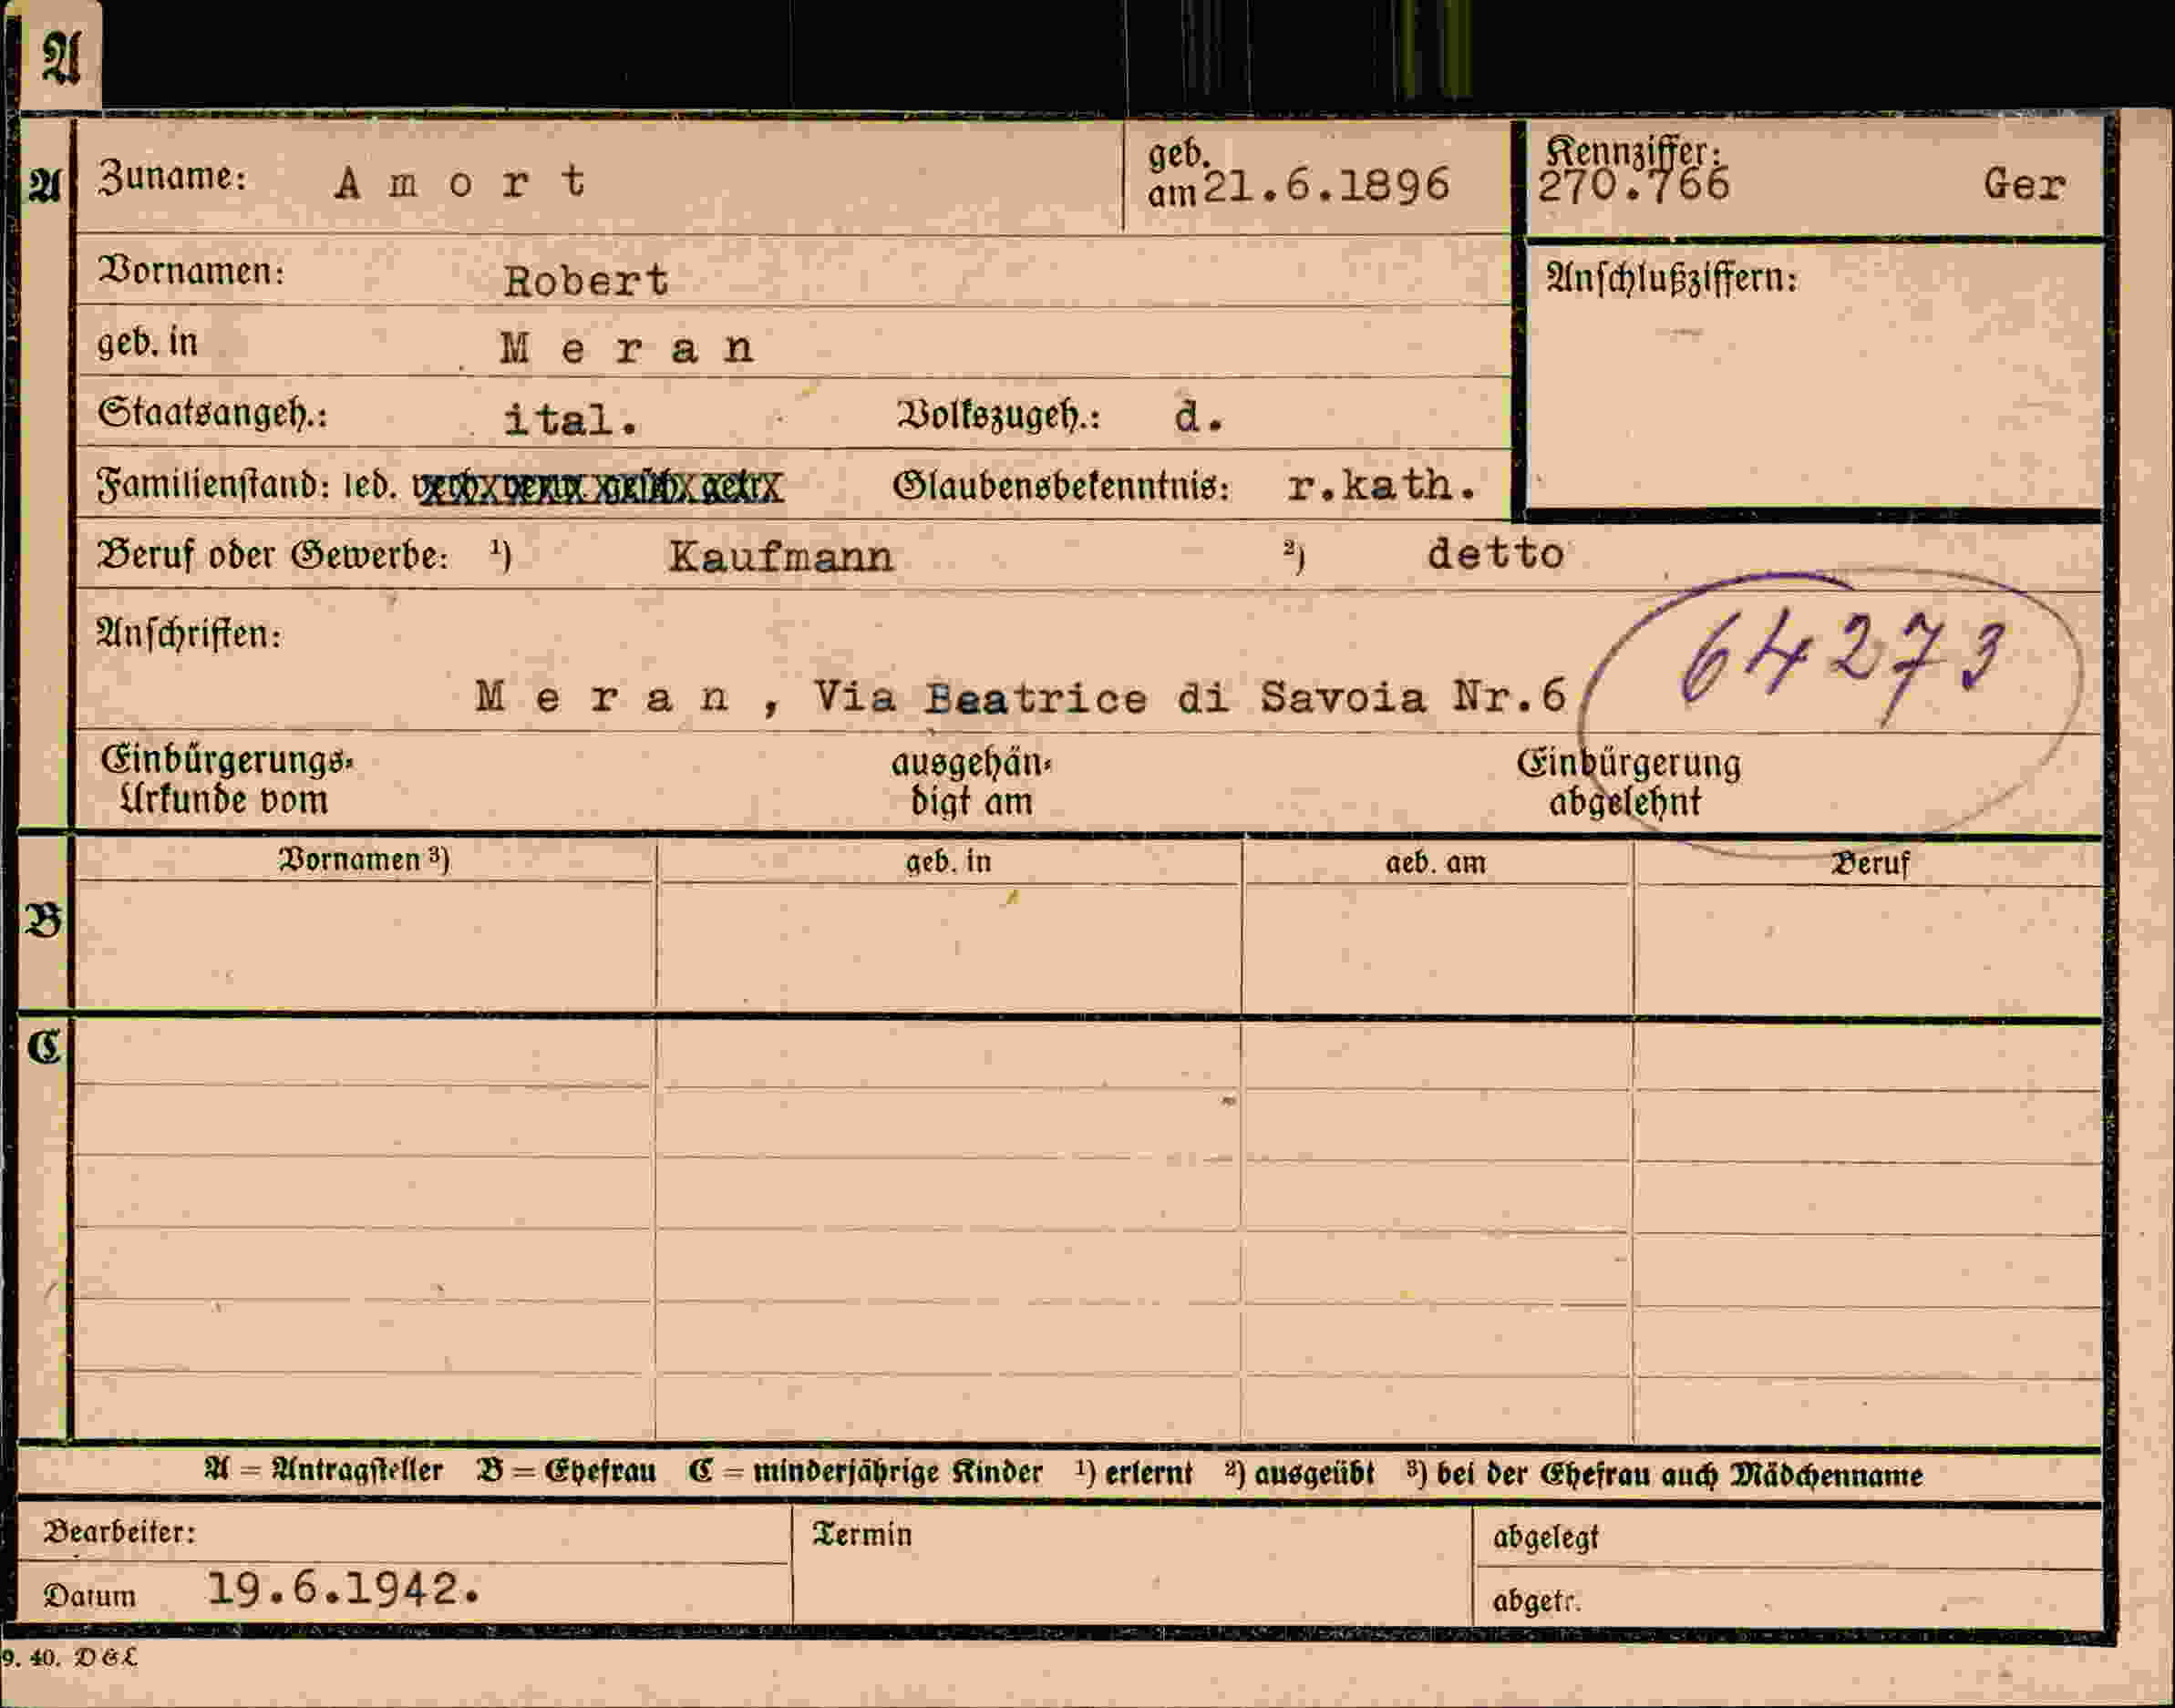 A
A Zuname: Amort geb. am 21.6.1896 Kennziffer: 270.766 Ger
Vornamen: Robert Anschlußziffern:
geb. in Meran
Staatsangeh.: ital. Volkszugeh.: d.
Familienstand: led. Glaubensbekenntnis: r.kath.
Beruf oder Gewerbe: ¹) Kaufmann ²) detto
Anschriften: 64273
Meran, Via Beatrice di Savoia Nr.6
Einbürgerungs- ausgehän- Einbürgerung
Urkunde vom digt am abgelehnt
Vornamen ³) geb. in geb. am Beruf
B
C
A = Antragsteller B = Ehefrau C = minderjährige Kinder ¹) erlernt ²) ausgeübt ³) bei der Ehefrau auch Mädchenname
Bearbeiter: Termin abgelegt
Datum 19.6.1942. abgetr.
9. 40. D&L